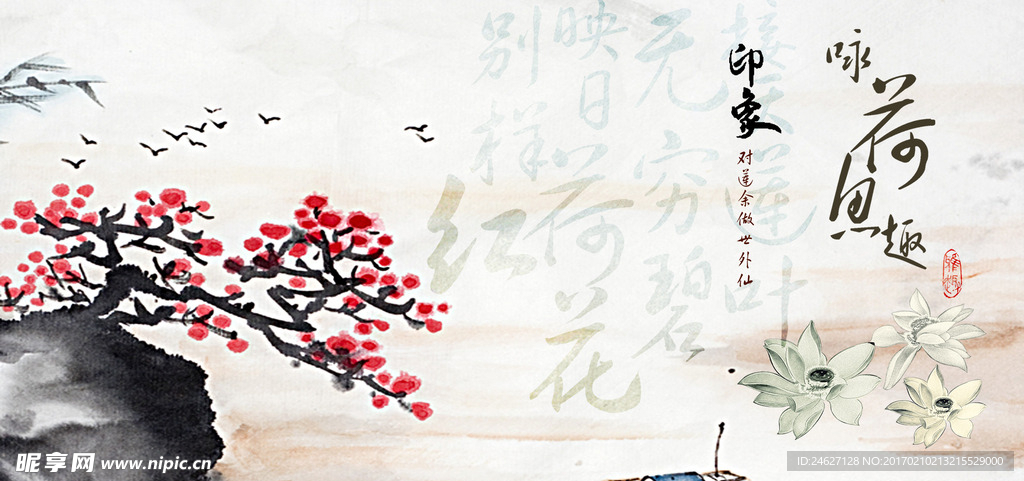 咏荷思趣
印象
对莲余做世外仙
接天莲叶
无穷碧
映日荷花
别样红
昵享网 www.nipic.cn
ID:24627128 NO:20170210213215529000